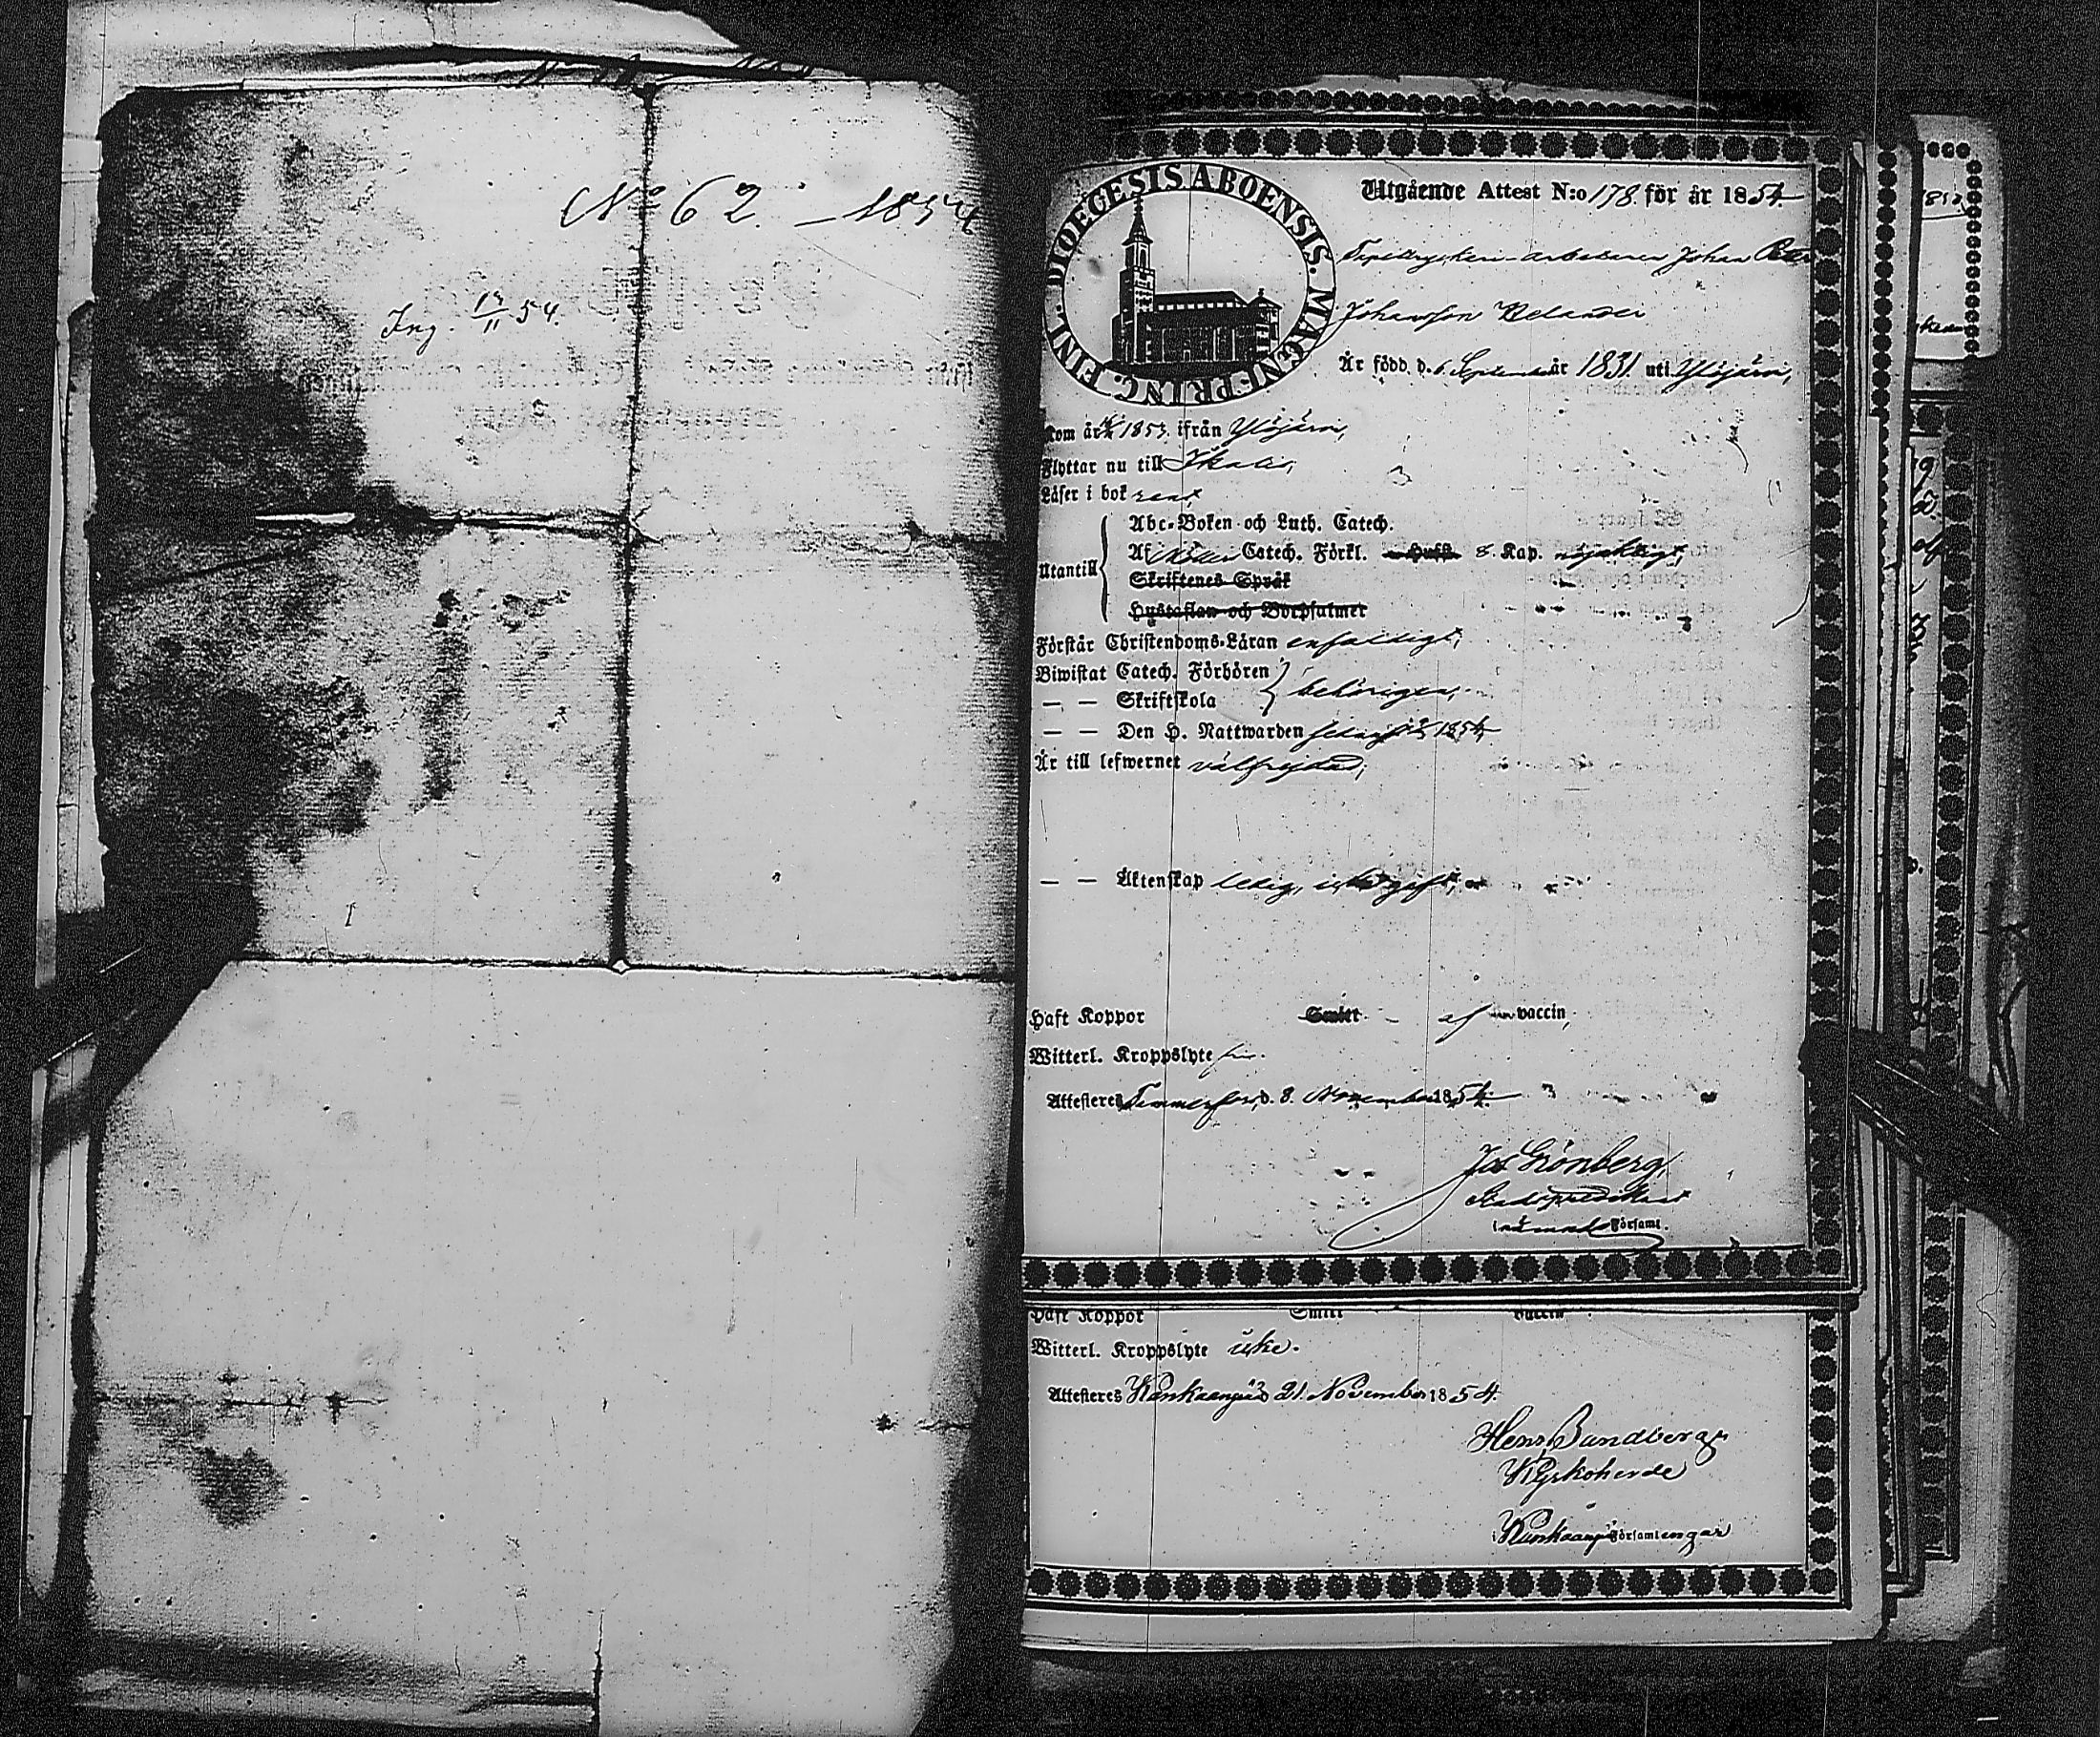 No 62. – 1854
Ing. 17/11 54.
DIOECESIS ABOENSIS. MAGNI PRINC. FINL.
Utgående Attest N:o 178. för år 1854
arbetaren Johan Peter
Johansson
Är född d. 6 September år 1831. uti Ylöjärvi,
Kom år 1853. ifrån Ylöjärvi,
Flyttar nu till Ikalis,
Läser i bok rent
Utantill
Abc-Boken och Luth. Catech.
Af Catech. Förkl. 8. Kap. nöjaktigt,
Skriftenes Språk
Hustaflan och Botpsalmer
Förstår Christendoms-Läran enfaldigt,
Biwistat Catech. Förhören
— — Skriftskola behörigen,
— — Den H. Nattwarden 1854,
Är till lefwernet välfrejdad,
— — Äktenskap ledig,
Haft Koppor Smitt af vaccin,
Witterl. Kroppslyte fri.
Attesteres Tammerfors, d. 8. November 1854.
Grönberg
Stadspredikant
Församl.
Haft Koppor Smitt Vaccin
Witterl. Kroppslyte icke.
Attesteres Kankaanpää 21. November 1854.
Kyrkoherde
i Kankaanpää Församlingar